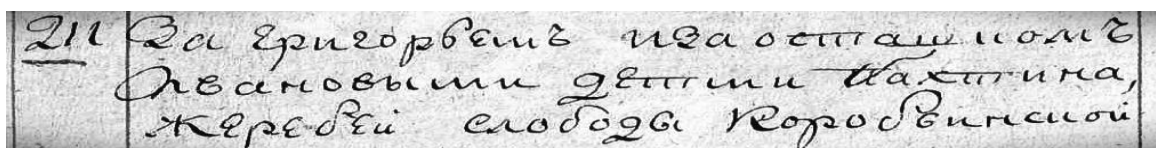 211 За григорьемъ иза осташкомъ
Ивановыми детми Пахтина,
жеребей слободы Коробьинской